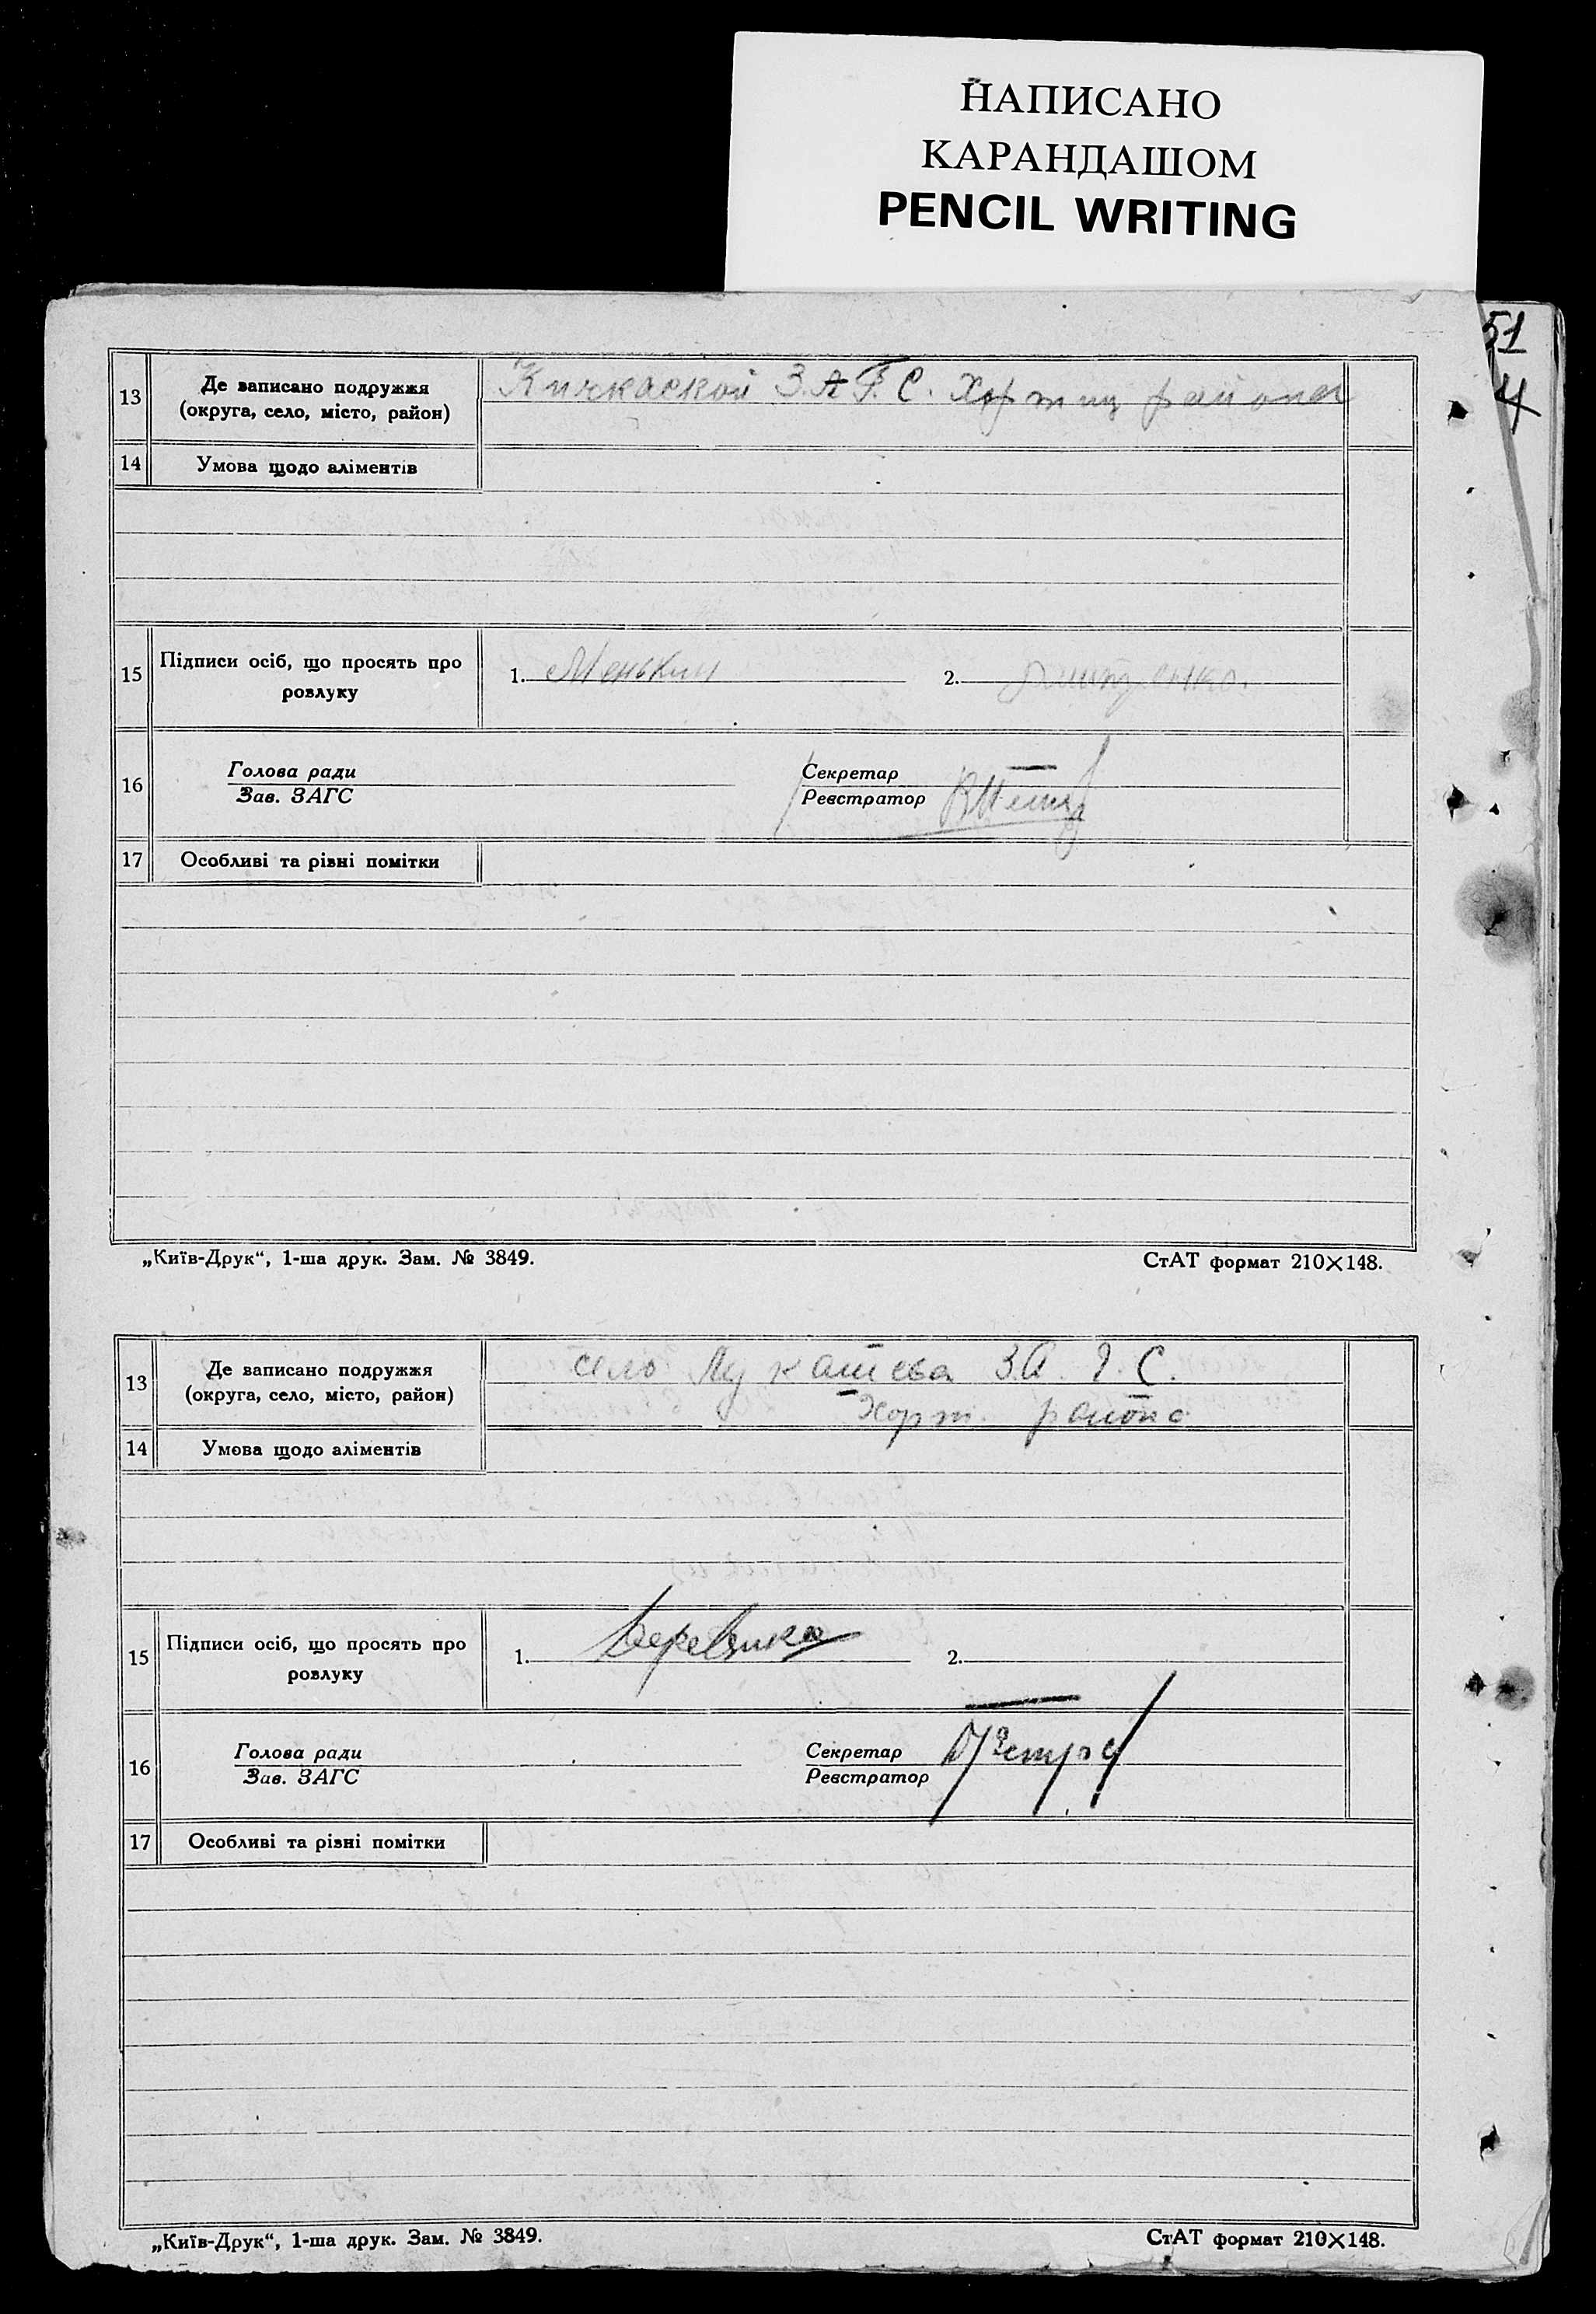 НАПИСАНО
КАРАНДАШОМ
PENCIL WRITING
51
4
13 Де записано подружжя (округа, село, місто, район) Кичкаской З.А.Г.С. Хортиц района
14 Умова щодо аліментів
15 Підписи осіб, що просять про розлуку 1. Менькин 2.
16 Голова ради Зав. ЗАГС Секретар Реєстратор
17 Особливі та різні помітки
„Київ-Друк“, 1-ша друк. Зам. № 3849. СтАТ формат 210×148.
13 Де записано подружжя (округа, село, місто, район) село Лукашева З.А.Г.С.
Хорт. района
14 Умова щодо аліментів
15 Підписи осіб, що просять про розлуку 1. 2.
16 Голова ради Зав. ЗАГС Секретар Реєстратор
17 Особливі та різні помітки
„Київ-Друк“, 1-ша друк. Зам. № 3849. СтАТ формат 210×148.